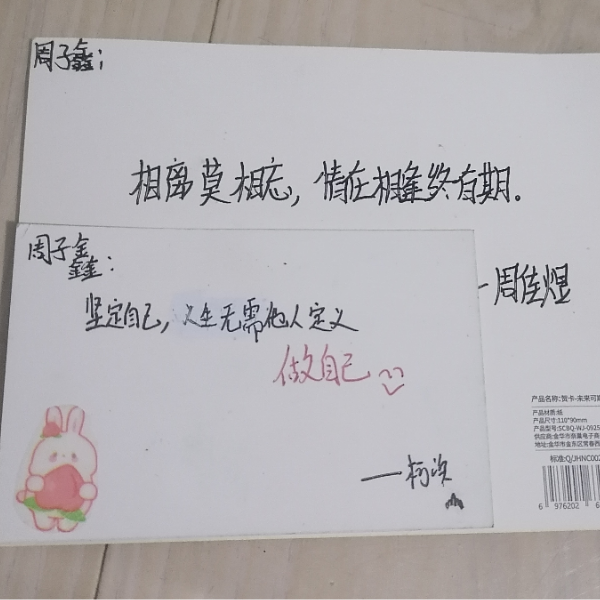 周子鑫:
相离莫相忘，情在相逢终有期.
—周佳煜
周子鑫:
坚定自己，人生无需他人定义
做自己
产品名称:贺卡-未来可期
产品材质:纸
产品尺寸:110*90mm
产品型号:SCBQ-WJ-0925
标准:Q/JHNC002
6 976202 6